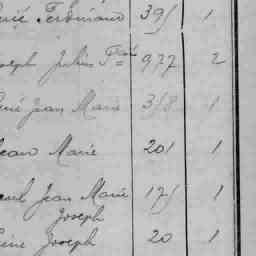 Ferdinand 395 1
Joseph Julien Fçois 977 2
René Jean Marie 358 1
Jean Marie 201 1
Jean Marie 175 1
Joseph
Joseph 20 1